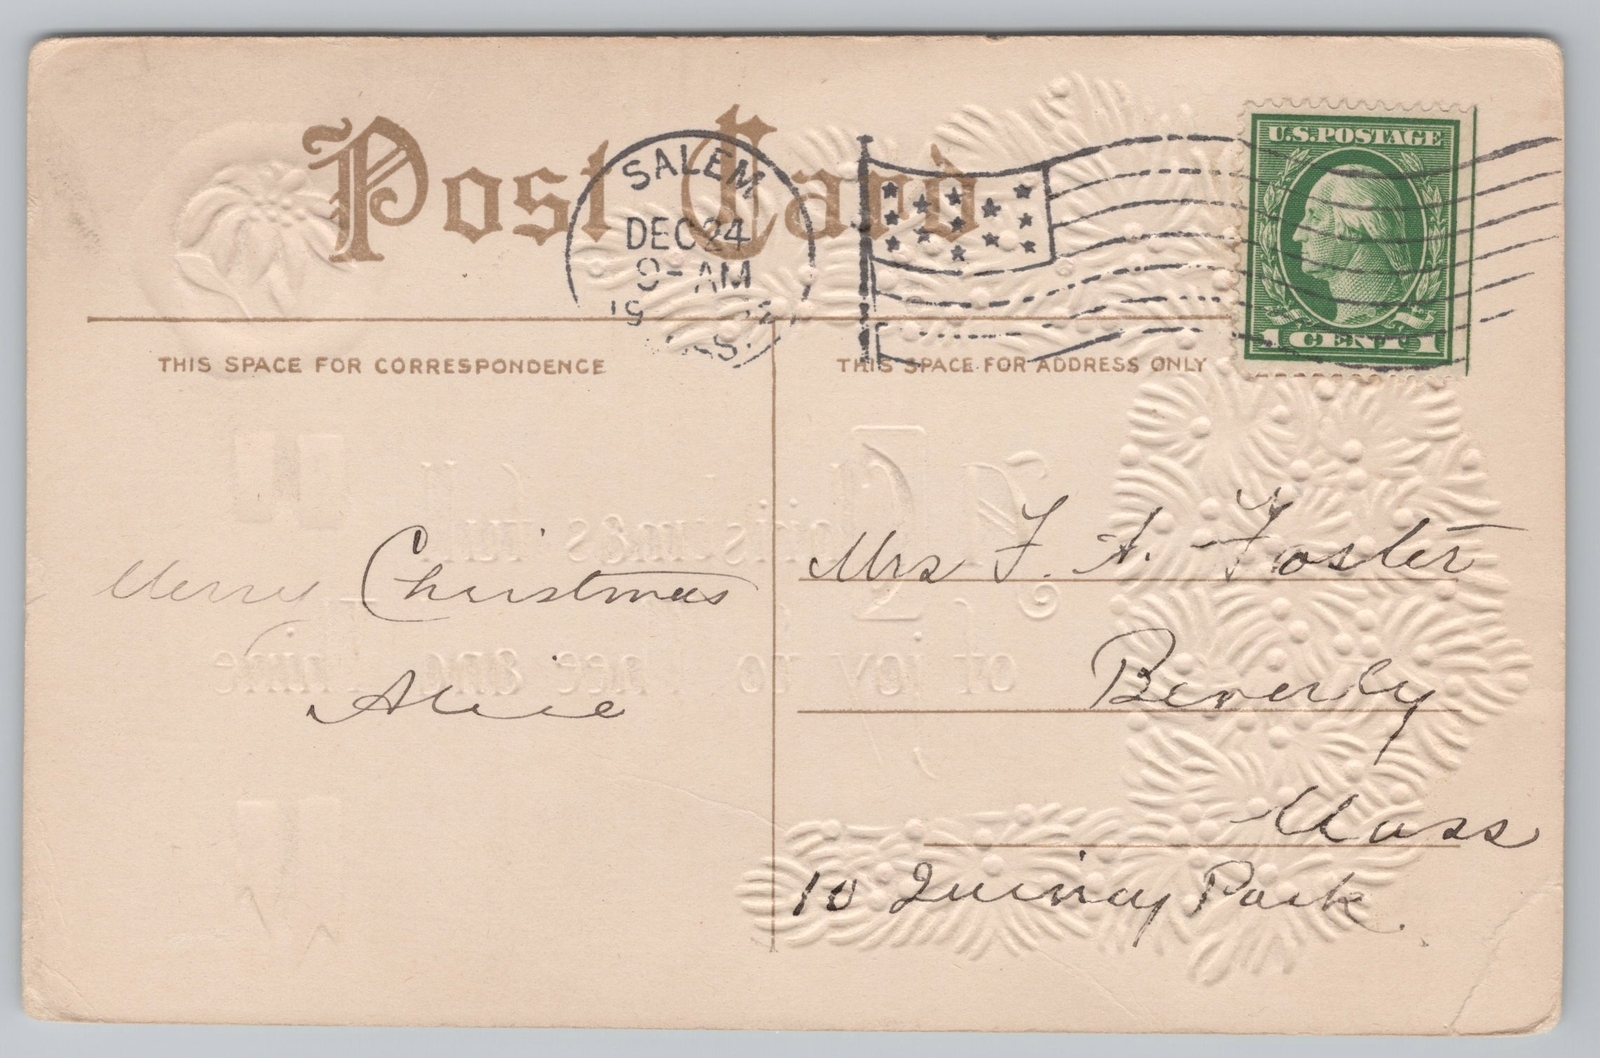 Post Card
SALEM
DEC 24
9- AM
U.S. POSTAGE
1 CENT 1
THIS SPACE FOR CORRESPONDENCE
THIS SPACE FOR ADDRESS ONLY
Merry Christmas
Alice
Mrs F. A. Foster
Beverly
Mass
10 Quincy Park.